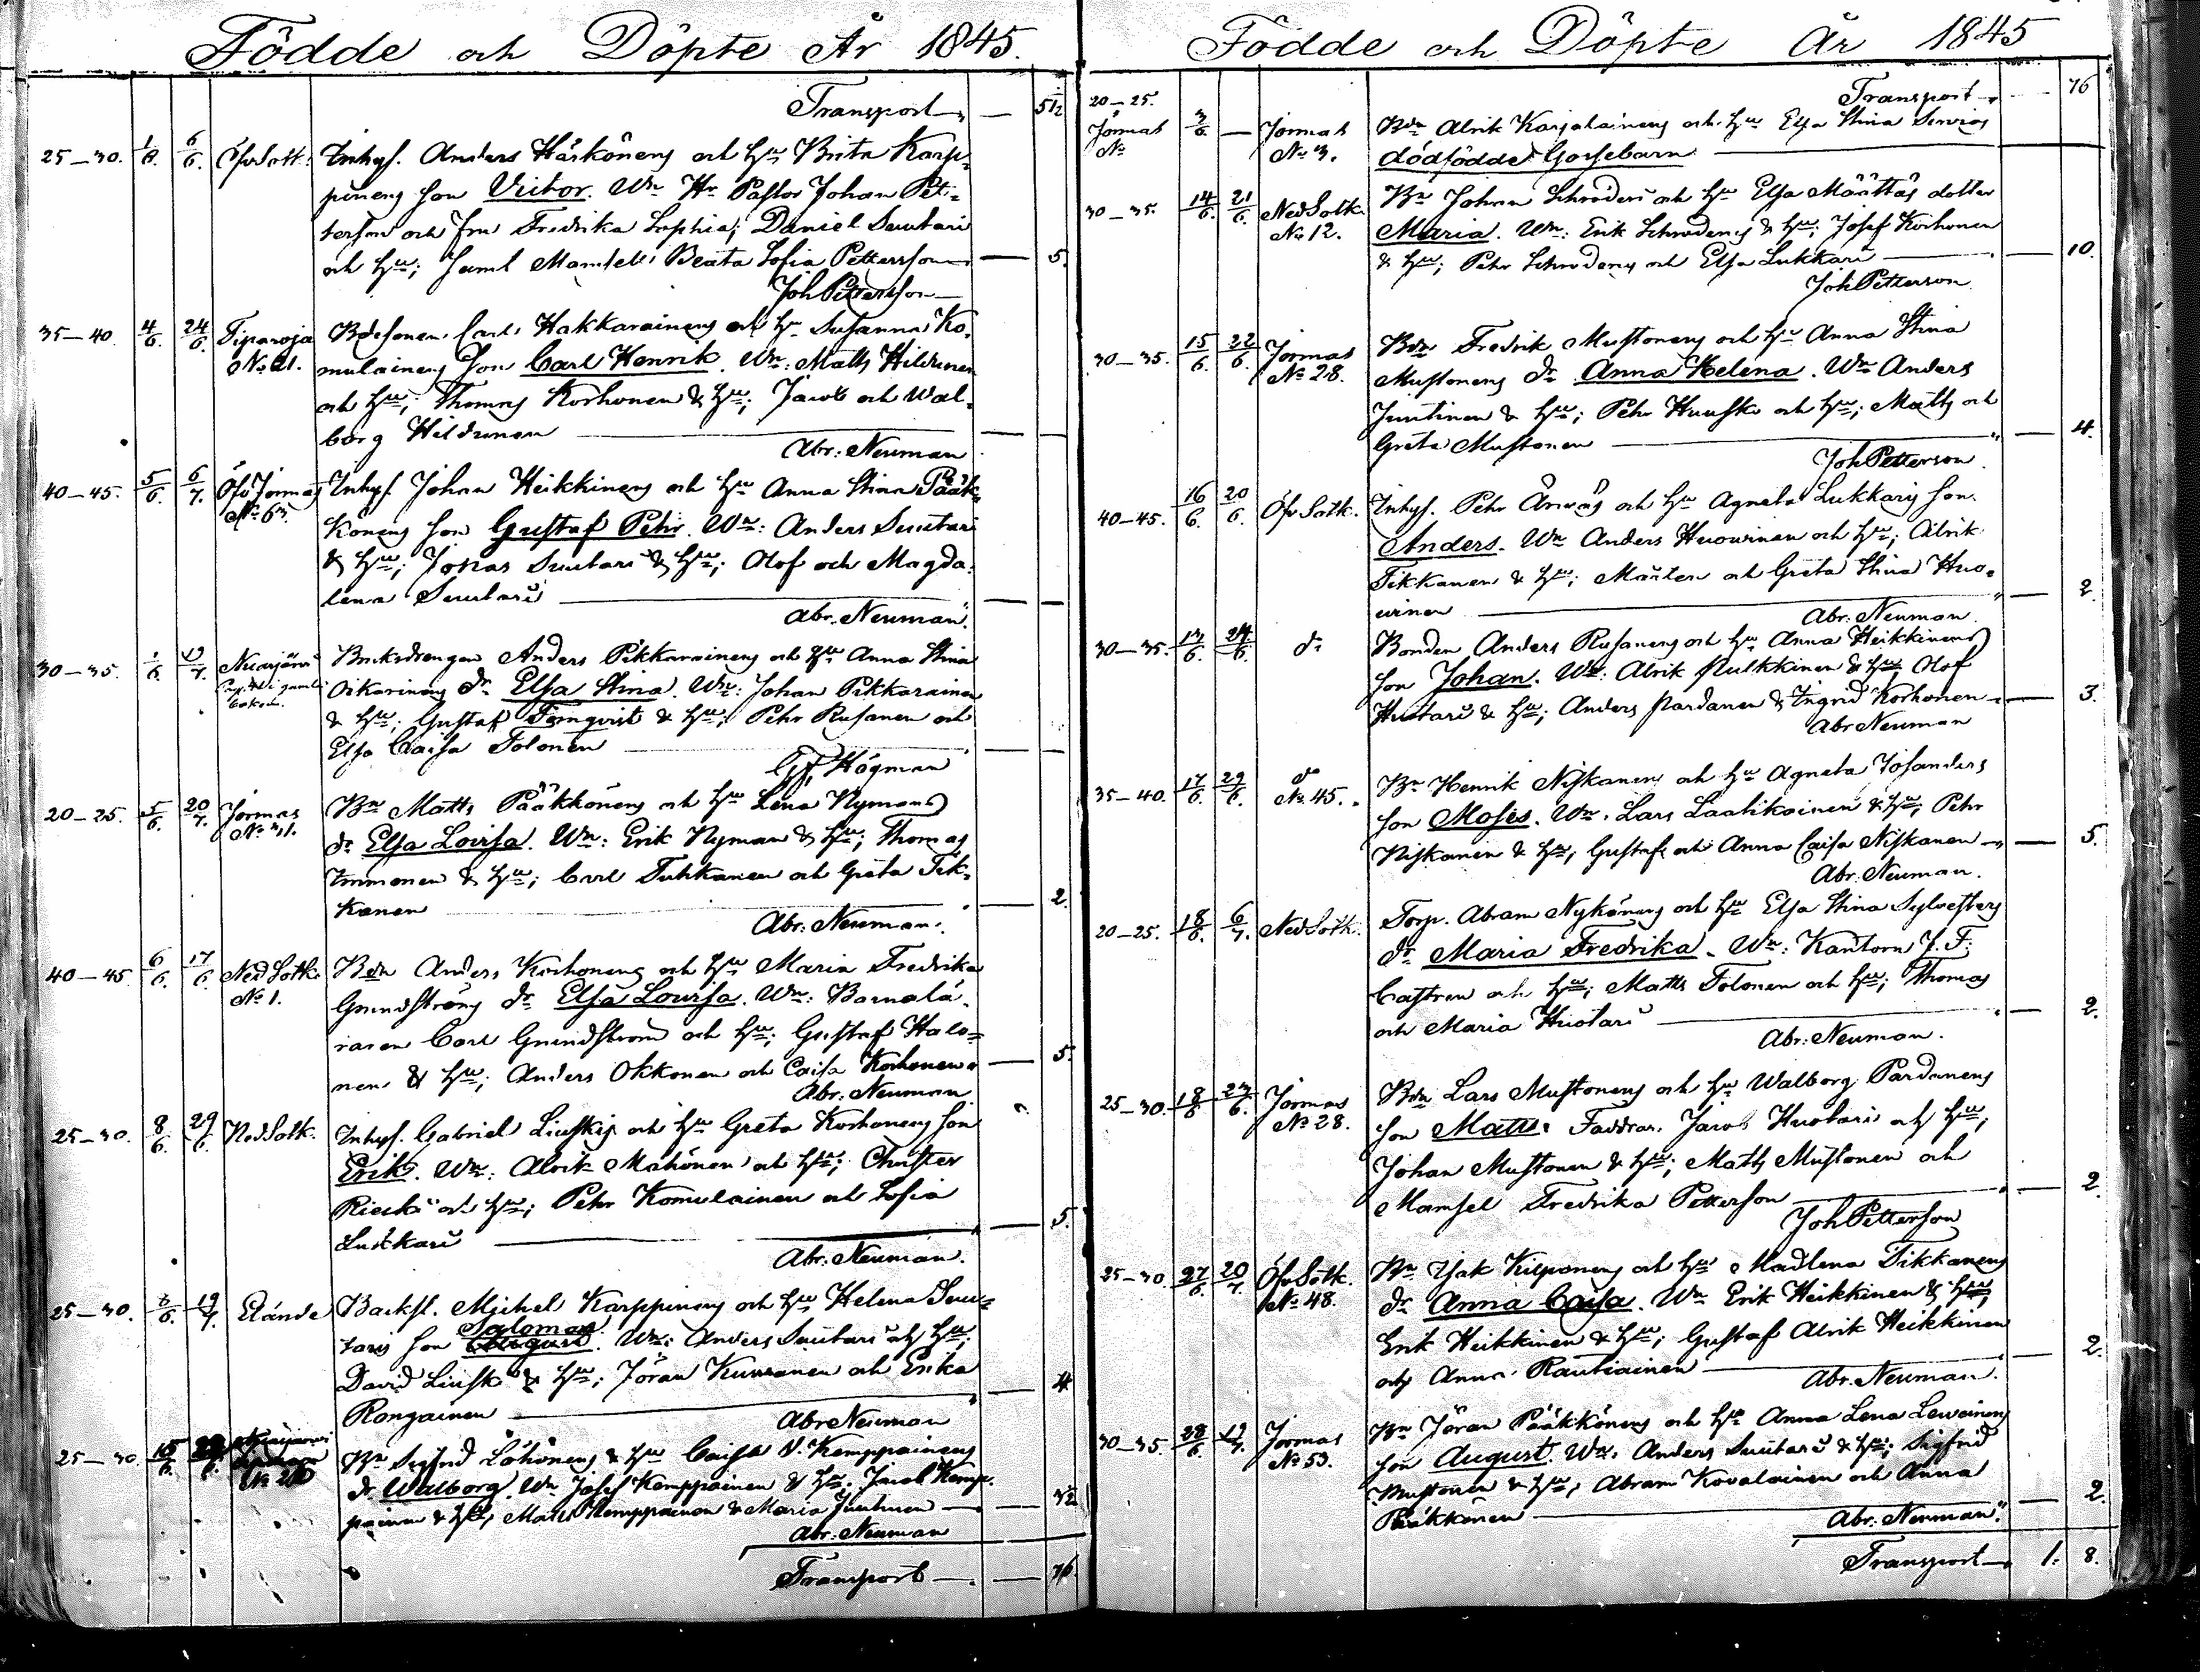 Födde och Döpte År 1845.
Transport 51½
25–30. 1/6. 6/6. Öfv Sotk. Inhys. Anders Härkönens och Hu Brita Karp-
pinens son Victor. Wn Hr Pastor Johan Pet-
terson och fru Fredrika Sophia; Daniel Suutari
och Hu; Saml Mamsell Beata Sofia Pettersson 5.
Joh Petterson
35–40. 4/6. 24/6. Tiparoja Bdesonen Carl Hakkarainens och Hu Susanna Ko-
No 21. mulainens son Carl Henrik. Wn: Matts Hildunen
och Hu; Thomas Korhonen & Hu; Jacob och Wal-
borg Hildunen
Abr: Neuman
40–45. 5/6. 6/7. Öfv Jormas Inhys. Johan Heikkinens och Hu Anna Stina Pääk-
könens son Gustaf Pehr. Wn: Anders Suutari
& Hu; Jonas Suutari & Hu; Olof och Magda-
lena Suutari
Abr. Neuman.
30–35. Nuasjärvi Bruksdrengen Anders Pikkarainens och Hu Anna Stina
Oikarinens dr Elsa Stina. Wn: Johan Pikkarainen
& Hu; Gustaf & Hu; Pehr Rusanen och
Elsa Caisa Tolonen
Högman
20–25. 5/6. 20/7. Jormas Bn Matts Pääkkönens och Hu Lena Nymans
dr Elsa Lovisa. Wn: Erik Nyman & Hu; Thomas
Immonen & Hu; Carl Tuhkanen och Greta Tik-
kanen 2.
Abr: Neuman.
40–45 6/6 17/6 Ned Sotk. Bdn Anders Korhonens och Hu Maria Fredrika
No 1. Grundströms dr Elsa Lovisa. Wn: Barnalä-
raren Carl Grundström och Hu; Gustaf Halo-
nen & Hu; Anders Okkonen och Caisa Korhonen 5.
Abr. Neuman
25–30. 8/6. 29/6. Ned Sotk. Inhys. Gabriel Liuskis och Hu Greta Korhonens son
Erik. Wn: Alrik Mähönen och Hu; Christer
Rieski och Hu; Pehr Komulainen och Sofia
Lukkari 5.
Abr. Neuman.
25–30. 19/7. Elände Backst. Michel Karppinens och Hu Helena Suu-
taris son Salomon. Wn: Anders Suutari och Hu;
David Liuski & Hu; Jöran Kurranen och Erika
Rongainen 4
Abr Neuman
25–30. 15/6. Bn Sigfrid Löhönens & Hu Caisa S. Kemppainens
dr Walborg. Wn Josef Kemppainen & Hu; Jacob Kemp-
painen & Hu; Matts Kemppainen & Maria Juntunen
Abr. Neuman
Transport 76.
Födde och Döpte År 1845
Transport 76
20–25. 3/6 — Jormas Bdn Alrik Karjalainens och Hu Elsa Stina
Jormas No No 3. dödfödde Gossebarn
30–35. 14/6. 21/6. Ned Sotk. Bn Johan Schroderi och Hu Elsa Määttäs dotter
No 12. Maria. Wn: Erik Schroderus & Hu; Josef Korhonen
& Hu; Pehr Schroderus och Elsa Lukkari 10.
Joh Petterson
30–35. 15/6. 22/6. Jormas Bdn Fredrik Mustonens och Hu Anna Stina
No 28. Mustonens dr Anna Helena. Wn Anders
Juntinen & Hu; Pehr Huusko och Hu; Matts och
Greta Mustonen 4.
Joh Petterson
40–45. 16/6. 20/6. Öfv Sotk. Inhys. Pehr Arwas och Hu Agneta Lukkaris son
Anders. Wn Anders Huowinen och Hu; Alrik
Tikkanen & Hu; Mårten och Greta Stina Huo-
winen 2.
Abr. Neuman
30–35. 17/6. 24/6. do Bonden Anders Rusanens och Hu Anna Heikkinens
son Johan. Wn: Alrik Pulkkinen & Hu Olof
Huotari & Hu; Anders Pardanen & Ingrid Korhonen 3.
Abr Neuman
35–40. 17/6. 29/6. do Bn Henrik Niskanens och Hu Agneta Tofanders
No 45. son Moses. Wn. Lars Laatikainen & Hu; Pehr
Niskanen & Hu; Gustaf och Anna Caisa Niskanen 5.
Abr. Neuman.
20–25. 18/6. 6/7. Ned Sotk. Torp. Abram Nykönens och Hu Elsa Stina Sylvesters
dr Maria Fredrika. Wn: Kantorn J. F.
Castren och Hu; Matts Tolonen och Hu; Thomas
och Maria Huotari 2.
Abr. Neuman.
25–30. 18/6 Jormas Bdn Lars Mustonens och Hu Walborg Pardanens
No 28. son Matts. Faddrar. Jacob Huotari och Hu;
Johan Mustonen & Hu; Matts Mustonen och
Mamsel Fredrika Petterson 2.
Joh Petterson
25–30. 27/6 20/7. Öfv Sotk. Bn Isak Kilponens och Hu Madlena Tikkanens
No 48. dr Anna Caisa. Wn Erik Heikkinen & Hu;
Erik Heikkinen & Hu; Gustaf Alrik Heikkinen
och Anna Rautiainen 2.
Abr. Neuman.
30–35. 28/6 Jormas Bn Jöran Pääkkönens och Hu Anna Lena Leweinens
No 53. son August. Wn. Anders Suutari & Hu; Sigfrid
Mustonen & Hu; Abram Kovalainen och Anna
Pääkkönen 2.
Abr. Neuman.
Transport 1. 8.